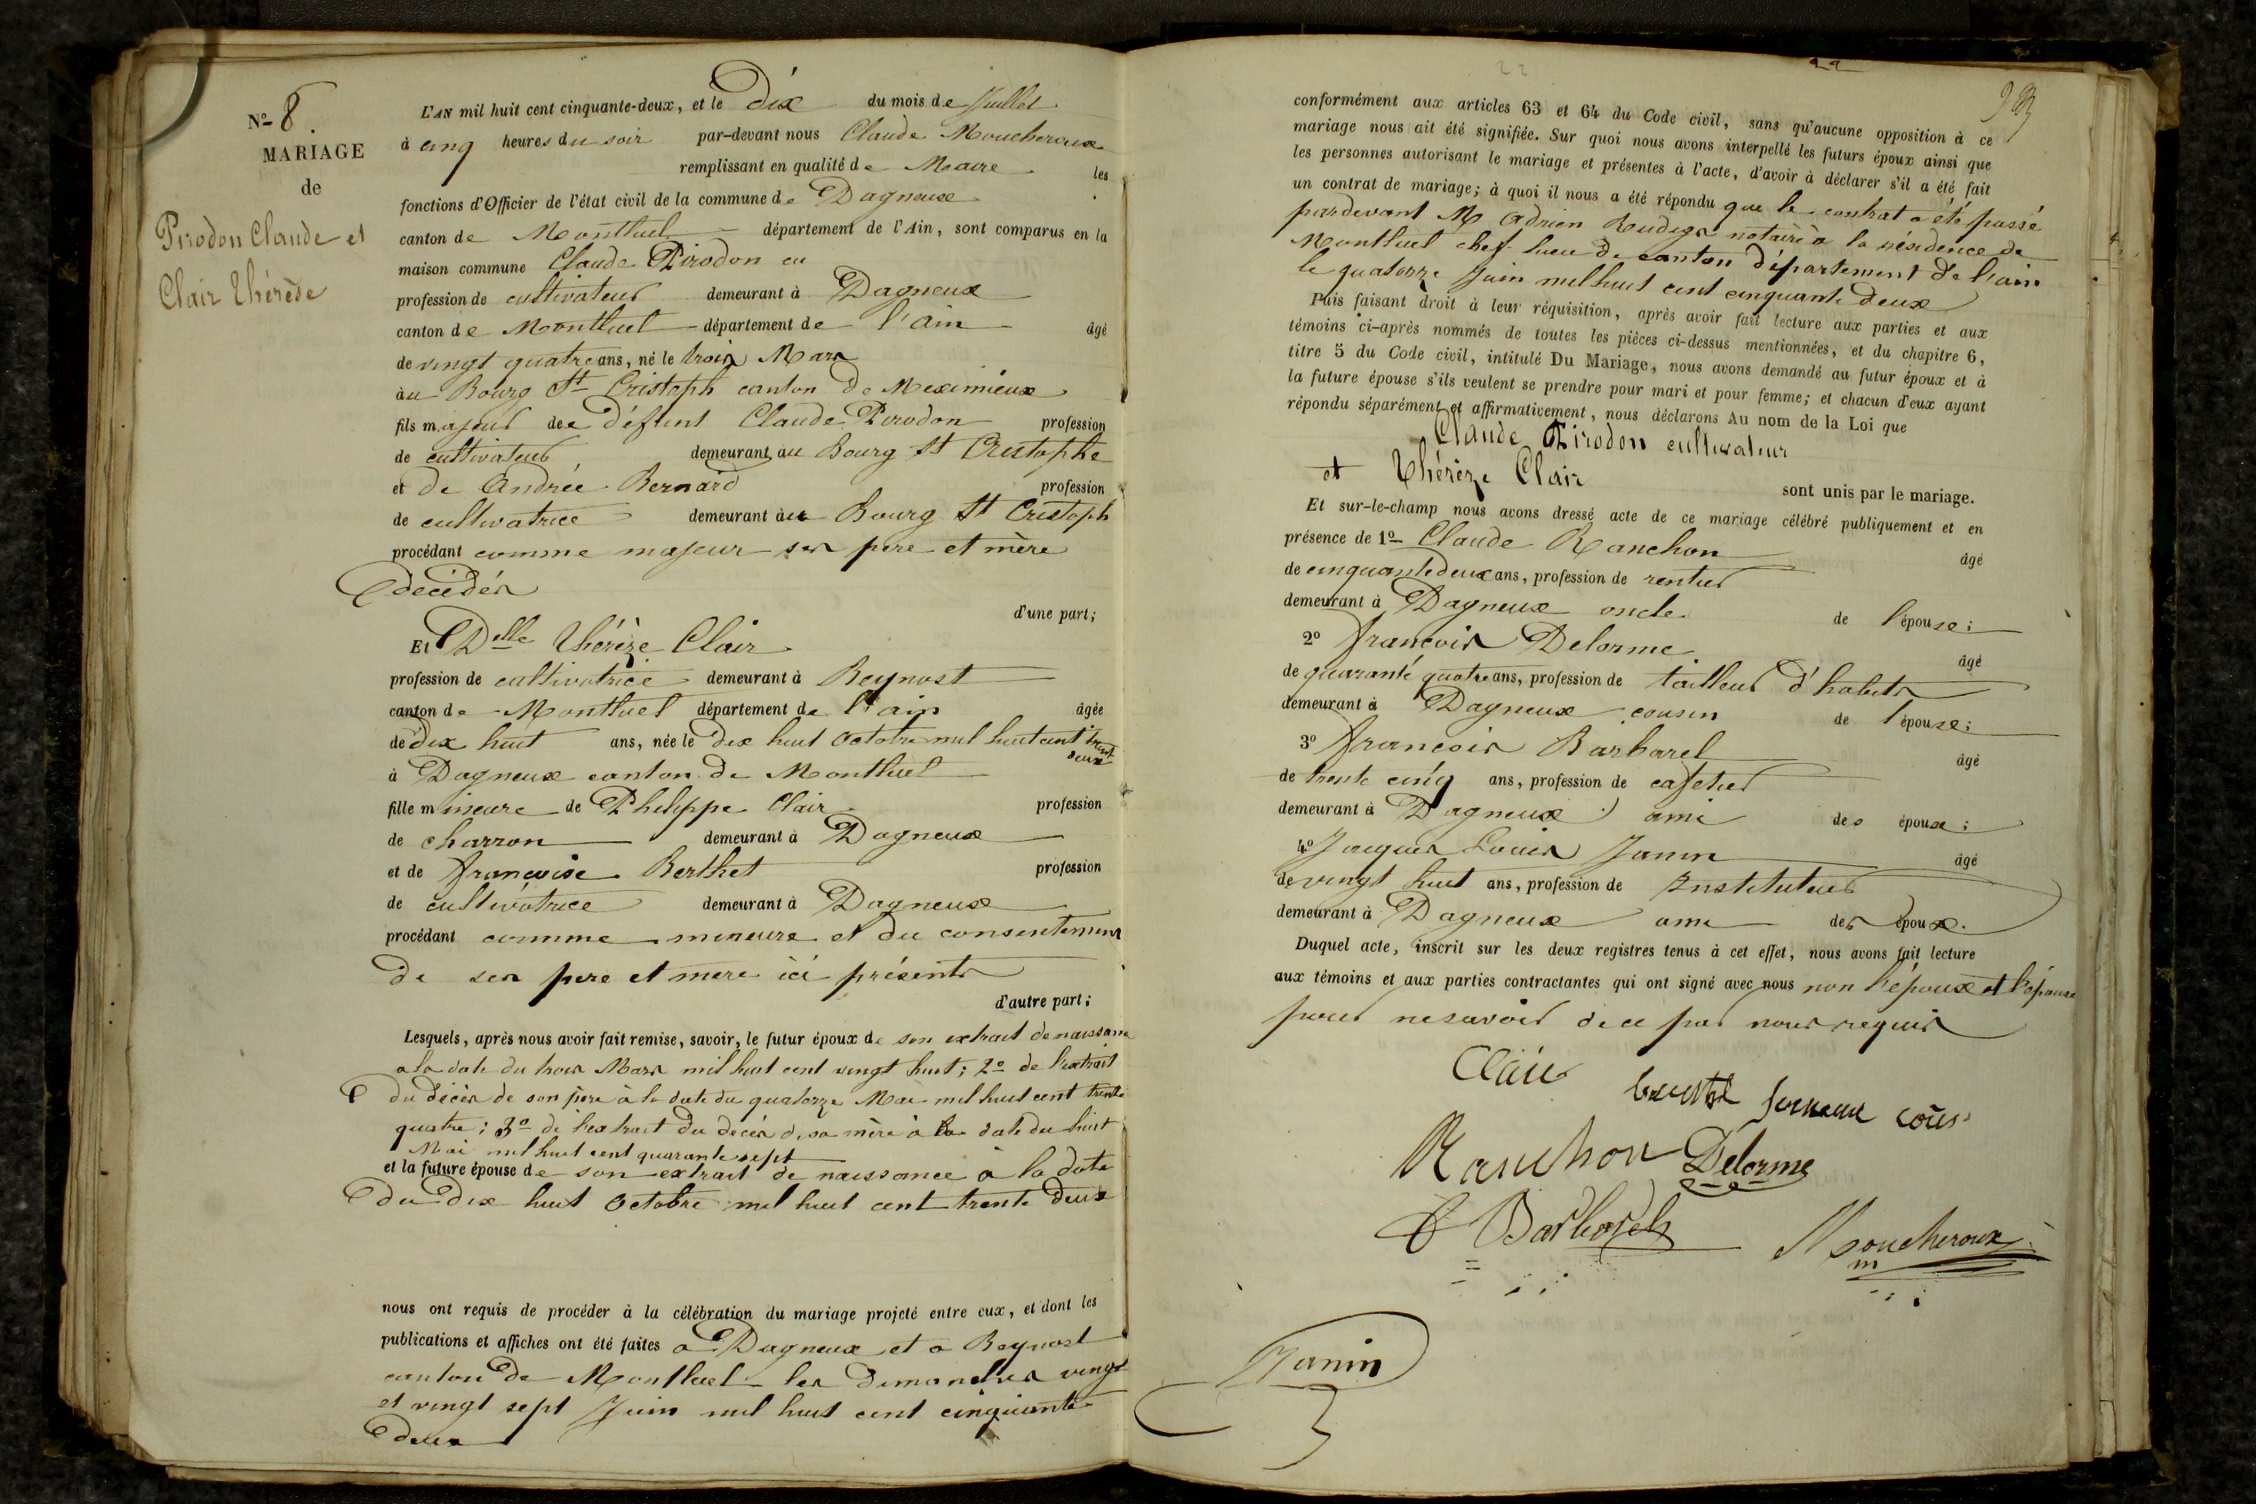 N° 8.
MARIAGE
de
Pirodon Claude et
Clair Thérèse
L'AN mil huit cent cinquante-deux, et le Dix du mois de Juillet
à cinq heures du soir par-devant nous Claude Moucheroux
remplissant en qualité de Maire les
fonctions d'Officier de l'état civil de la commune de Dagneux
canton de Montluel département de l'Ain, sont comparus en la
maison commune Claude Pirodon
profession de cultivateur demeurant à Dagneux
canton de Montluel département de l'ain âgé
de vingt quatre ans, né le trois Mars
au Bourg St Cristoph canton de Meximieux
fils majeur de Défunt Claude Pirodon profession
de cultivateur demeurant au Bourg St Cristophe
et de Andrée Bernard profession
de cultivatrice demeurant au Bourg St Cristoph
procédant comme majeur ses pere et mère
décédés
d'une part;
Et Delle Thérèze Clair
profession de cultivatrice demeurant à Beynost
canton de Montluel département de l'ain âgée
de dix huit ans, née le dix huit Octobre mil huit cent trente
deux
à Dagneux canton de Montluel
fille mineure de Philippe Clair profession
de charron demeurant à Dagneux
et de françoise Berthet profession
de cultivatrice demeurant à Dagneux
procédant comme mineure et du consentement
de ses pere et mere ici présents
d'autre part;
Lesquels, après nous avoir fait remise, savoir, le futur époux de son extrait de naissance
a la date du trois Mars mil huit cent vingt huit; 2° de l'extrait
du décès de son père à la date du quatorze Mai mil huit cent trente
quatre; 3° de l'extrait du décès de sa mère à la date du huit
Mai mil huit cent quarante sept
et la future épouse de son extrait de naissance à la date
du dix huit Octobre mil huit cent trente deux
nous ont requis de procéder à la célébration du mariage projeté entre eux, et dont les
publications et affiches ont été faites a Dagneux et a Beynost
canton de Montluel les dimanches vingt
et vingt sept Juin mil huit cent cinquante
deux
22
conformément aux articles 63 et 64 du Code civil, sans qu'aucune opposition à ce
mariage nous ait été signifiée. Sur quoi nous avons interpellé les futurs époux ainsi que
les personnes autorisant le mariage et présentes à l'acte, d'avoir à déclarer s'il a été fait
un contrat de mariage; à quoi il nous a été répondu que le contrat a été passé
pardevant M Adrien Rudigr notaire à la résidence de
Montluel chef lieu de canton département de l'ain
le quatorze Juin mil huit cent cinquante deux
Puis faisant droit à leur réquisition, après avoir fait lecture aux parties et aux
témoins ci-après nommés de toutes les pièces ci-dessus mentionnées, et du chapitre 6,
titre 5 du Code civil, intitulé Du Mariage, nous avons demandé au futur époux et à
la future épouse s'ils veulent se prendre pour mari et pour femme; et chacun d'eux ayant
répondu séparément et affirmativement, nous déclarons Au nom de la Loi que
Claude Pirodon cultivateur
et Thérèze Clair sont unis par le mariage.
Et sur-le-champ nous avons dressé acte de ce mariage célébré publiquement et en
présence de 1° Claude Ranchon âgé
de cinquante deux ans, profession de rentier
demeurant à Dagneux oncle de l'épouse;
2° francois Delorme âgé
de quarante quatre ans, profession de tailleur d'habits
demeurant à Dagneux cousin de l'épouse;
3° francois Barbarel âgé
de trente cinq ans, profession de cafetier
demeurant à Dagneux ami des époux;
4° Jacques Louis Janin âgé
de vingt huit ans, profession de Instituteur
demeurant à Dagneux ami des époux.
Duquel acte, inscrit sur les deux registres tenus à cet effet, nous avons fait lecture
aux témoins et aux parties contractantes qui ont signé avec nous non l'époux et l'épouse
pour ne savoir de ce par nous requis
Clair
Ranchon Delorme
Barbarel Moucheroux
m
Janin